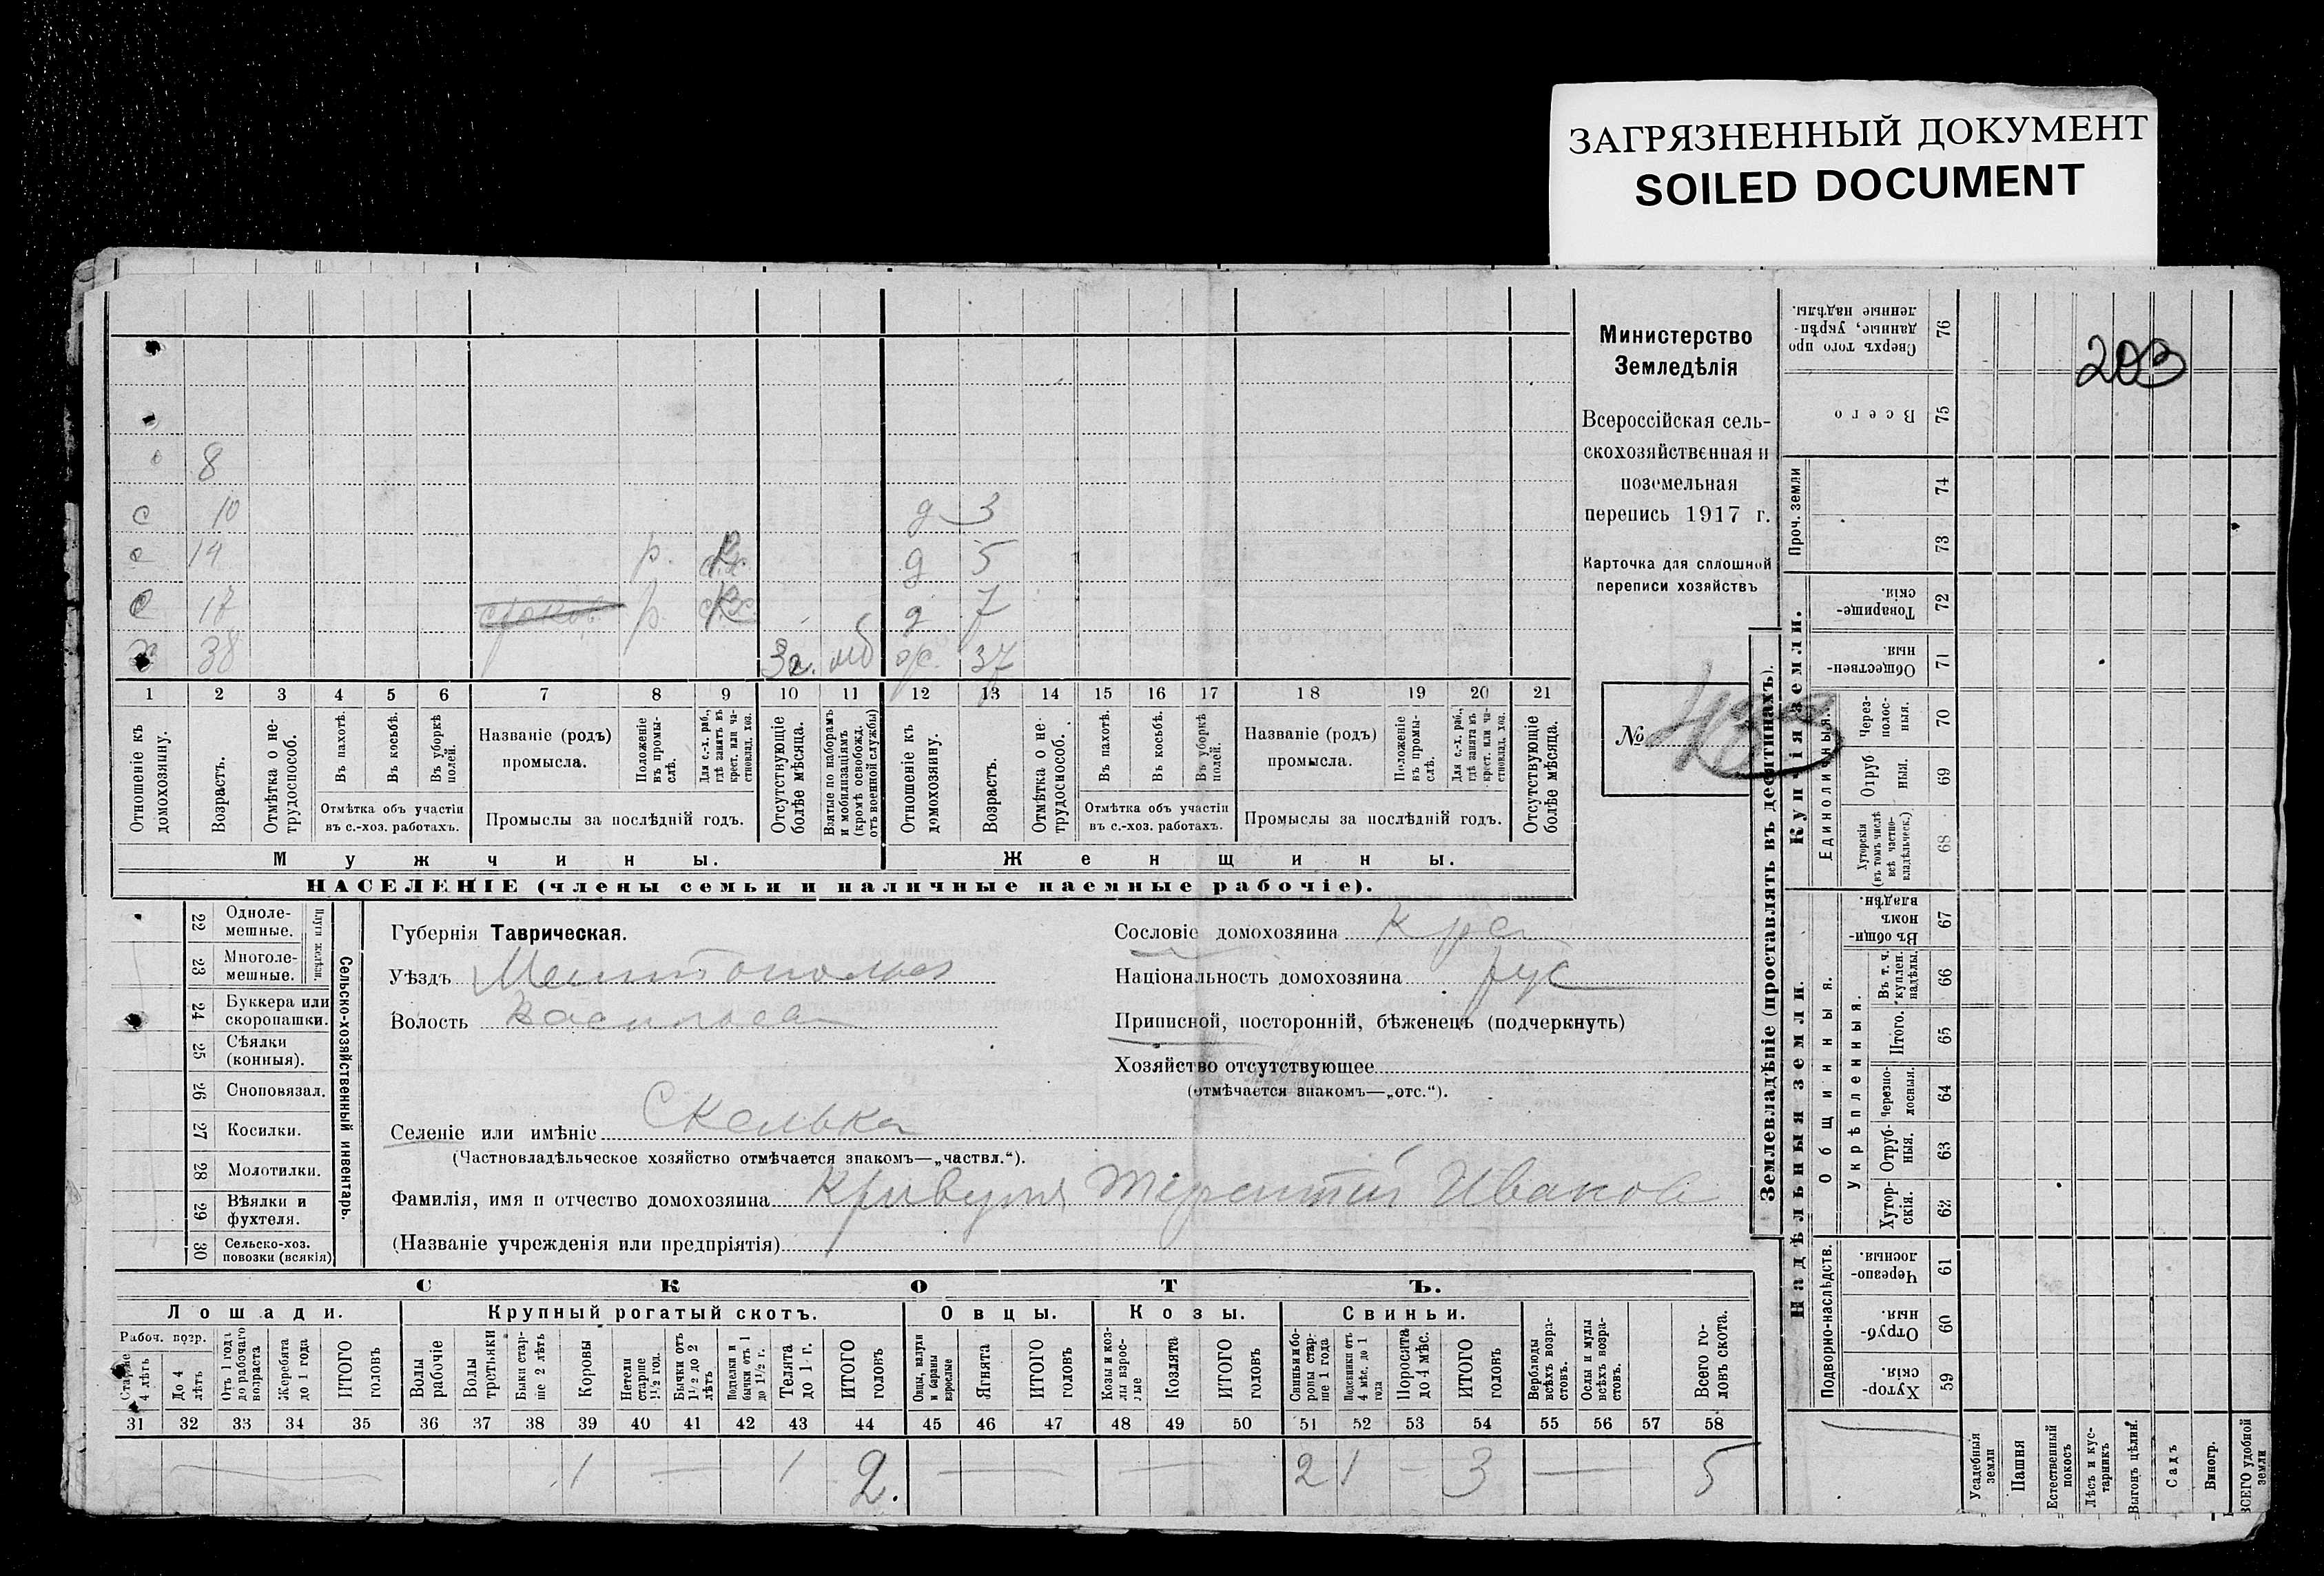 ЗАГРЯЗНЕННЫЙ ДОКУМЕНТ
SOILED DOCUMENT
203
8
с 10 д 3
с 14 р. д 5
с 17 р. д 7
х 38 За. моб 37
1 2 3 4 5 6 7 8 9 10 11 12 13 14 15 16 17 18 19 20 21
Отношеніе къ домохозяину.
Возрастъ.
Отмѣтка о нетрудоспособ.
Въ пахотѣ.
Въ косьбѣ.
Въ уборкѣ полей.
Отмѣтка объ участіи
въ с.-хоз. работахъ.
Названіе (родъ)
промысла.
Положеніе въ промыслѣ.
Для с.-х. раб., гдѣ занятъ въ крест. или частновлад. хоз.
Промыслы за послѣдній годъ.
Отсутствующіе болѣе мѣсяца.
Взятые по наборамъ и мобилизаціямъ (кромѣ освобожд. отъ военной службы)
Отношеніе къ домохозяину.
Возрастъ.
Отмѣтка о нетрудоспособ.
Въ пахотѣ.
Въ косьбѣ.
Въ уборкѣ полей.
Отмѣтка объ участіи
въ с.-хоз. работахъ.
Названіе (родъ)
промысла.
Положеніе въ промыслѣ.
Для с.-х. раб., гдѣ занята въ крест. или частновлад. хоз.
Промыслы за послѣдній годъ.
Отсутствующіе болѣе мѣсяца.
Мужчины.
Женщины.
НАСЕЛЕНІЕ (члены семьи и наличные наемные рабочіе).
Министерство
Земледѣлія
Всероссійская сель-
скохозяйственная и
поземельная
перепись 1917 г.
Карточка для сплошной
переписи хозяйствъ
№
Сельско-хозяйственный инвентарь.
Плуги желѣзн.
22 Одноле-
мешные.
23 Многоле-
мешные.
24 Буккера или
скоропашки.
25 Сѣялки
(конныя).
26 Сноповязал.
27 Косилки.
28 Молотилки.
29 Вѣялки и
фухтеля.
30 Сельско-хоз.
повозки (всякія)
Губернія Таврическая.
Уѣздъ Мелитопольск
Волость
Селеніе или имѣніе Скелька
(Частновладѣльческое хозяйство отмѣчается знакомъ—„частвл.“).
Фамилія, имя и отчество домохозяина Кривуля Терентій Иванов
(Названіе учрежденія или предпріятія)
Сословіе домохозяина Кре
Національность домохозяина рус
Приписной, посторонній, бѣженецъ (подчеркнуть)
Хозяйство отсутствующее
(отмѣчается знакомъ—„отс.“).
СКОТЪ.
Лошади. Крупный рогатый скотъ. Овцы. Козы. Свиньи.
Рабоч. возр.
Старше 4 лѣтъ
До 4 лѣтъ
Отъ 1 года до рабочаго возраста
Жеребята до 1 года
ИТОГО головъ
Волы рабочіе
Волы третьяки
Быки старше 2 лѣтъ
Коровы
Нетели старше 1½ год.
Бычки отъ 1½ до 2 лѣтъ
Подтелки и бычки отъ 1 до 1½ г.
Телята до 1 г.
ИТОГО головъ
Овцы, валухи и бараны взрослые
Ягнята
ИТОГО головъ
Козы и козлы взрослые
Козлята
ИТОГО головъ
Свиньи и боровы старше 1 года
Подсвинки отъ 4 мѣс. до 1 года
Поросята до 4 мѣс.
ИТОГО головъ
Верблюды всѣхъ возрастовъ.
Ослы и мулы всѣхъ возрастовъ.
Всего головъ скота.
31 32 33 34 35 36 37 38 39 40 41 42 43 44 45 46 47 48 49 50 51 52 53 54 55 56 57 58
— 1 — 1 2. — — 2 1 - 3 — 5
Землевладѣніе (проставлять въ десятинахъ).
Купчія земли.
Сверхъ того проданные, укрѣпленные надѣлы. 76
Всего 75
Проч. земли 74
73
Товарищескія. 72
Общественныя. 71
Единоличныя.
Черезполосныя. 70
Отрубныя. 69
Хуторскія (въ томъ числѣ всѣ частновладѣльческ.) 68
Надѣльныя земли.
Общинныя.
Въ общинномъ владѣн. 67
Укрѣпленныя.
Въ т. ч. куплен. надѣлы. 66
Итого. 65
Черезполосныя. 64
Отрубныя. 63
Хуторскія. 62
Подворно-наслѣдств.
Черезполосныя. 61
Отрубныя. 60
Хуторскія. 59
Усадебныя земли
Пашня
Естественный покосъ
Лѣсъ и кустарникъ
Выгонъ цѣлин.
Садъ
Виногр.
ВСЕГО удобной земли